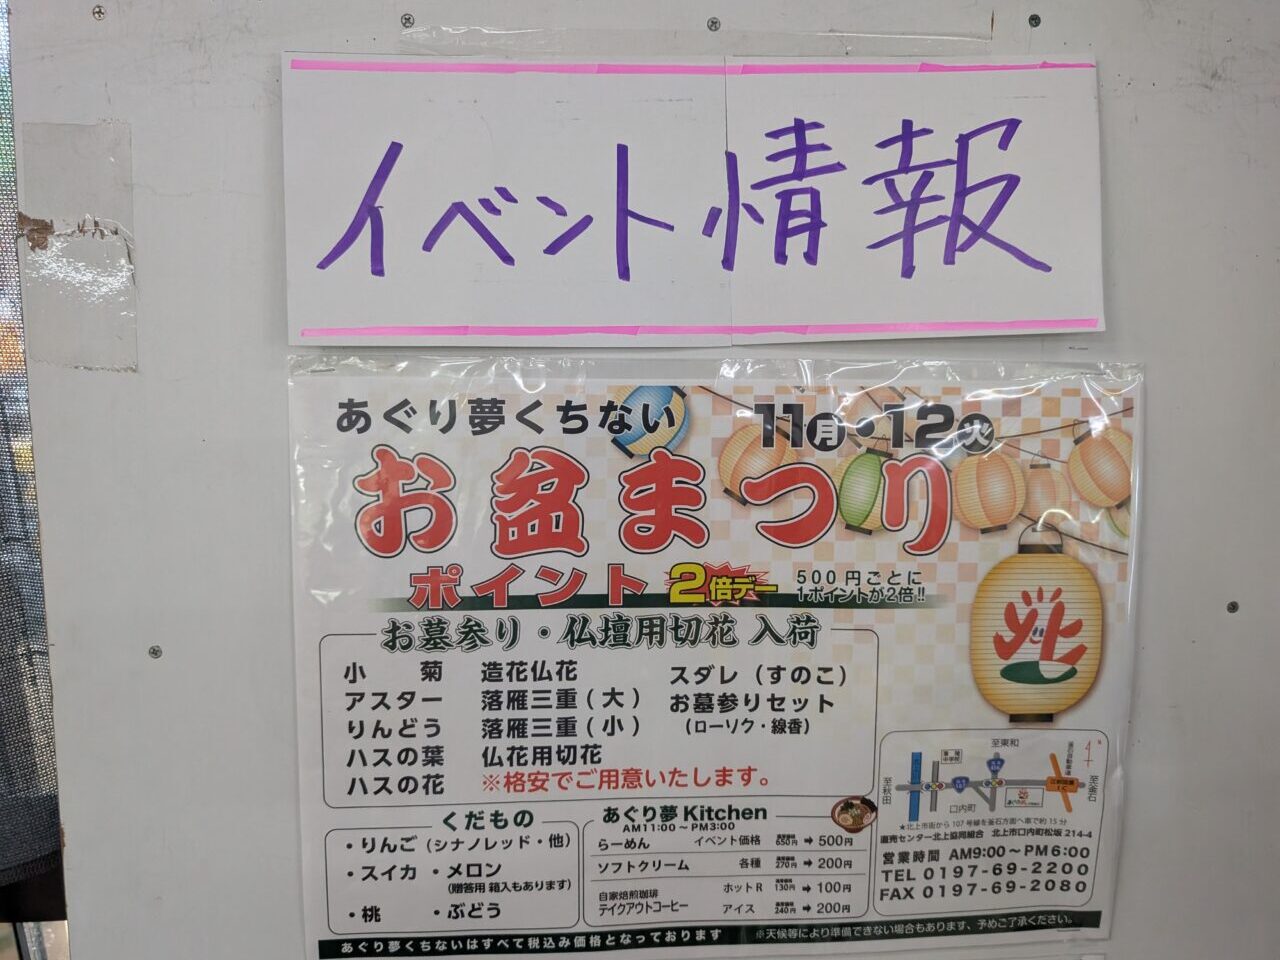 イベント情報
あぐり夢くちない
11月・12火
お盆まつり
ポイント 2倍デー
500円ごとに
1ポイントが2倍!!
お墓参り・仏壇用切花 入荷
小菊
アスター
りんどう
ハスの葉
ハスの花
造花仏花
落雁三重(大)
落雁三重(小)
仏花用切花
※格安でご用意いたします。
スダレ(すのこ)
お墓参りセット
(ローソク・線香)
くだもの
・りんご(シナノレッド・他)
・スイカ ・メロン
(贈答用 箱入もあります)
・桃 ・ぶどう
あぐり夢 Kitchen
AM11:00~PM3:00
らーめん イベント価格 650円 → 500円
ソフトクリーム 各種 270円 → 200円
自家焙煎珈琲
テイクアウトコーヒー
ホットR 130円 → 100円
アイス 240円 → 200円
至東和
至秋田
至釜石
口内町
釜石自動車道
★北上市街から107号線を釜石方面へ車で約15分
直売センター北上協同組合 北上市口内町松坂 214-4
営業時間 AM9:00~PM6:00
TEL 0197-69-2200
FAX 0197-69-2080
あぐり夢くちないはすべて税込み価格となっております
※天候等により準備できない場合もあります、予めご了承ください。